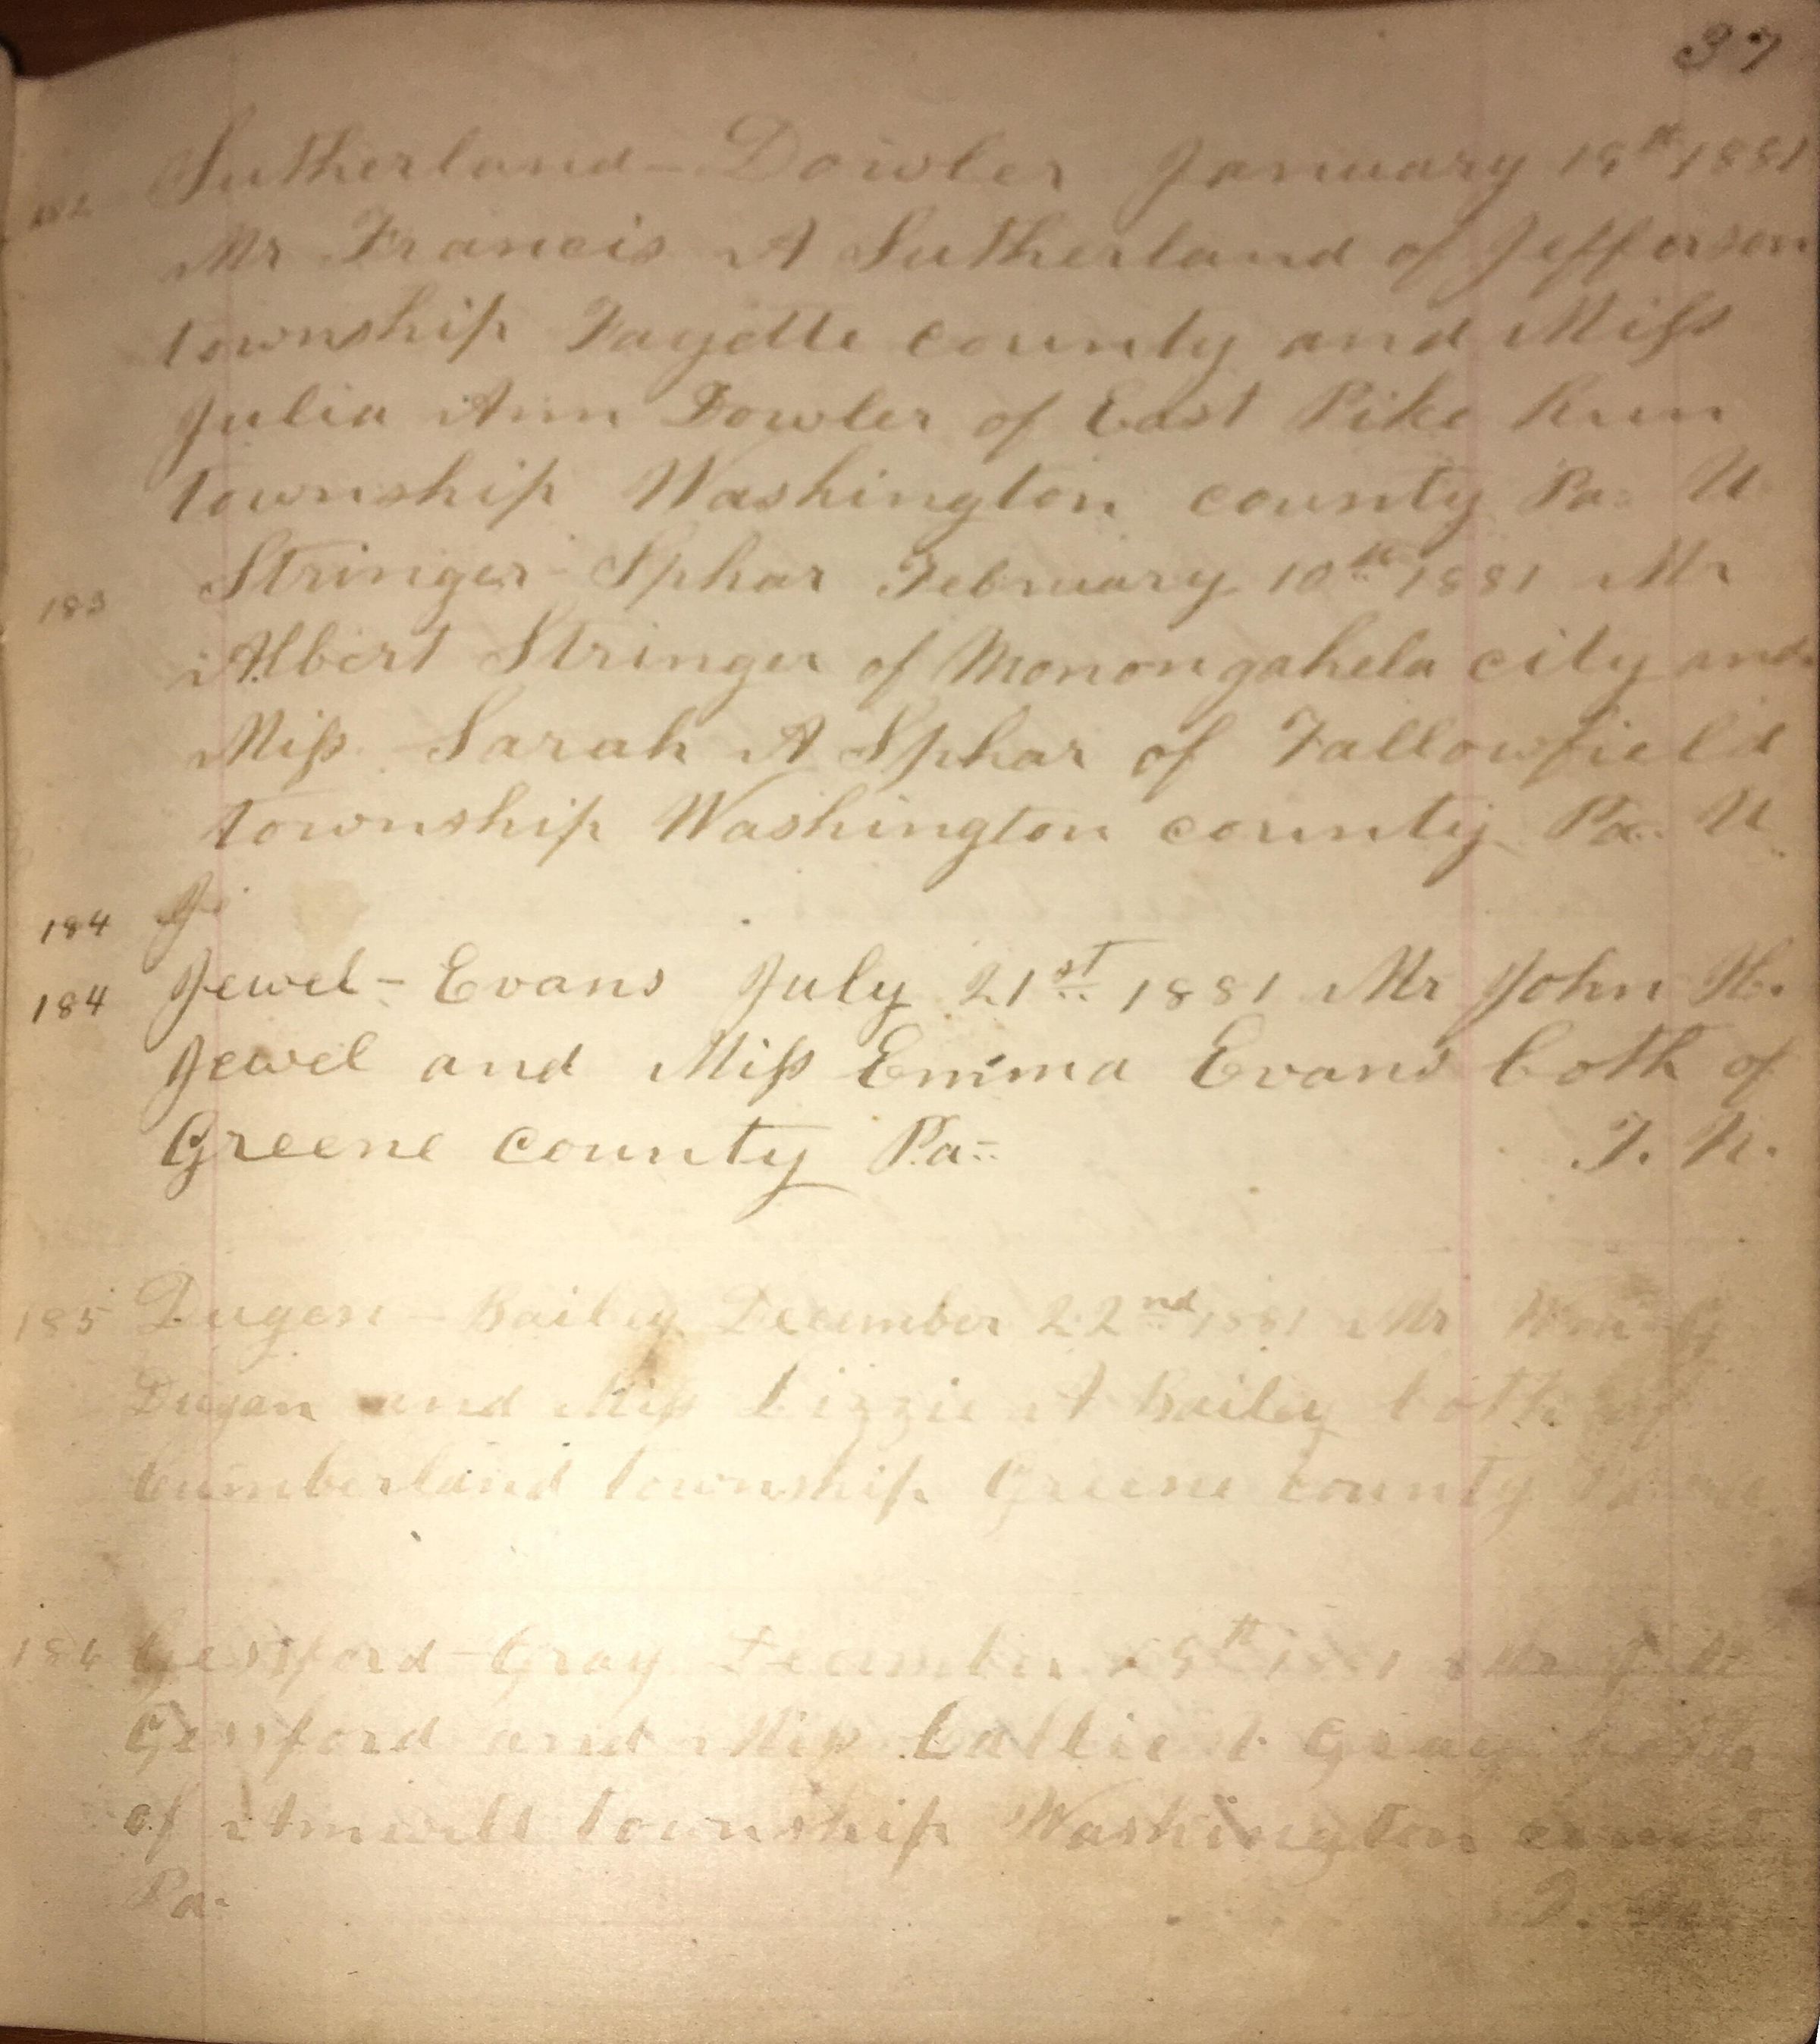 37
182 Sutherland - Dowler January 19th 1881
Mr Francis A Sutherland of Jefferson
township Fayette county and Miss
Julia Ann Dowler of East Pike Run
township Washington county Pa. U
183 Stringer - Sphar February 10th 1881 Mr
Albert Stringer of Monongahela city and
Miss Sarah A Sphar of Fallowfield
township Washington county Pa. U
184 Je
184 Jewel - Evans July 21st 1881 Mr John H.
Jewel and Miss Emma Evans both of
Greene county Pa= T. N.
185 Dugan - Bailey December 22nd 1881 Mr Wm G
Dugan and Miss Lizzie A Bailey both of
Cumberland township Greene county Pa
186 Gessford - Gray December 1881 Mr J
Gessford and Miss Callie Gray both
of Amwell township Washington county
Pa.